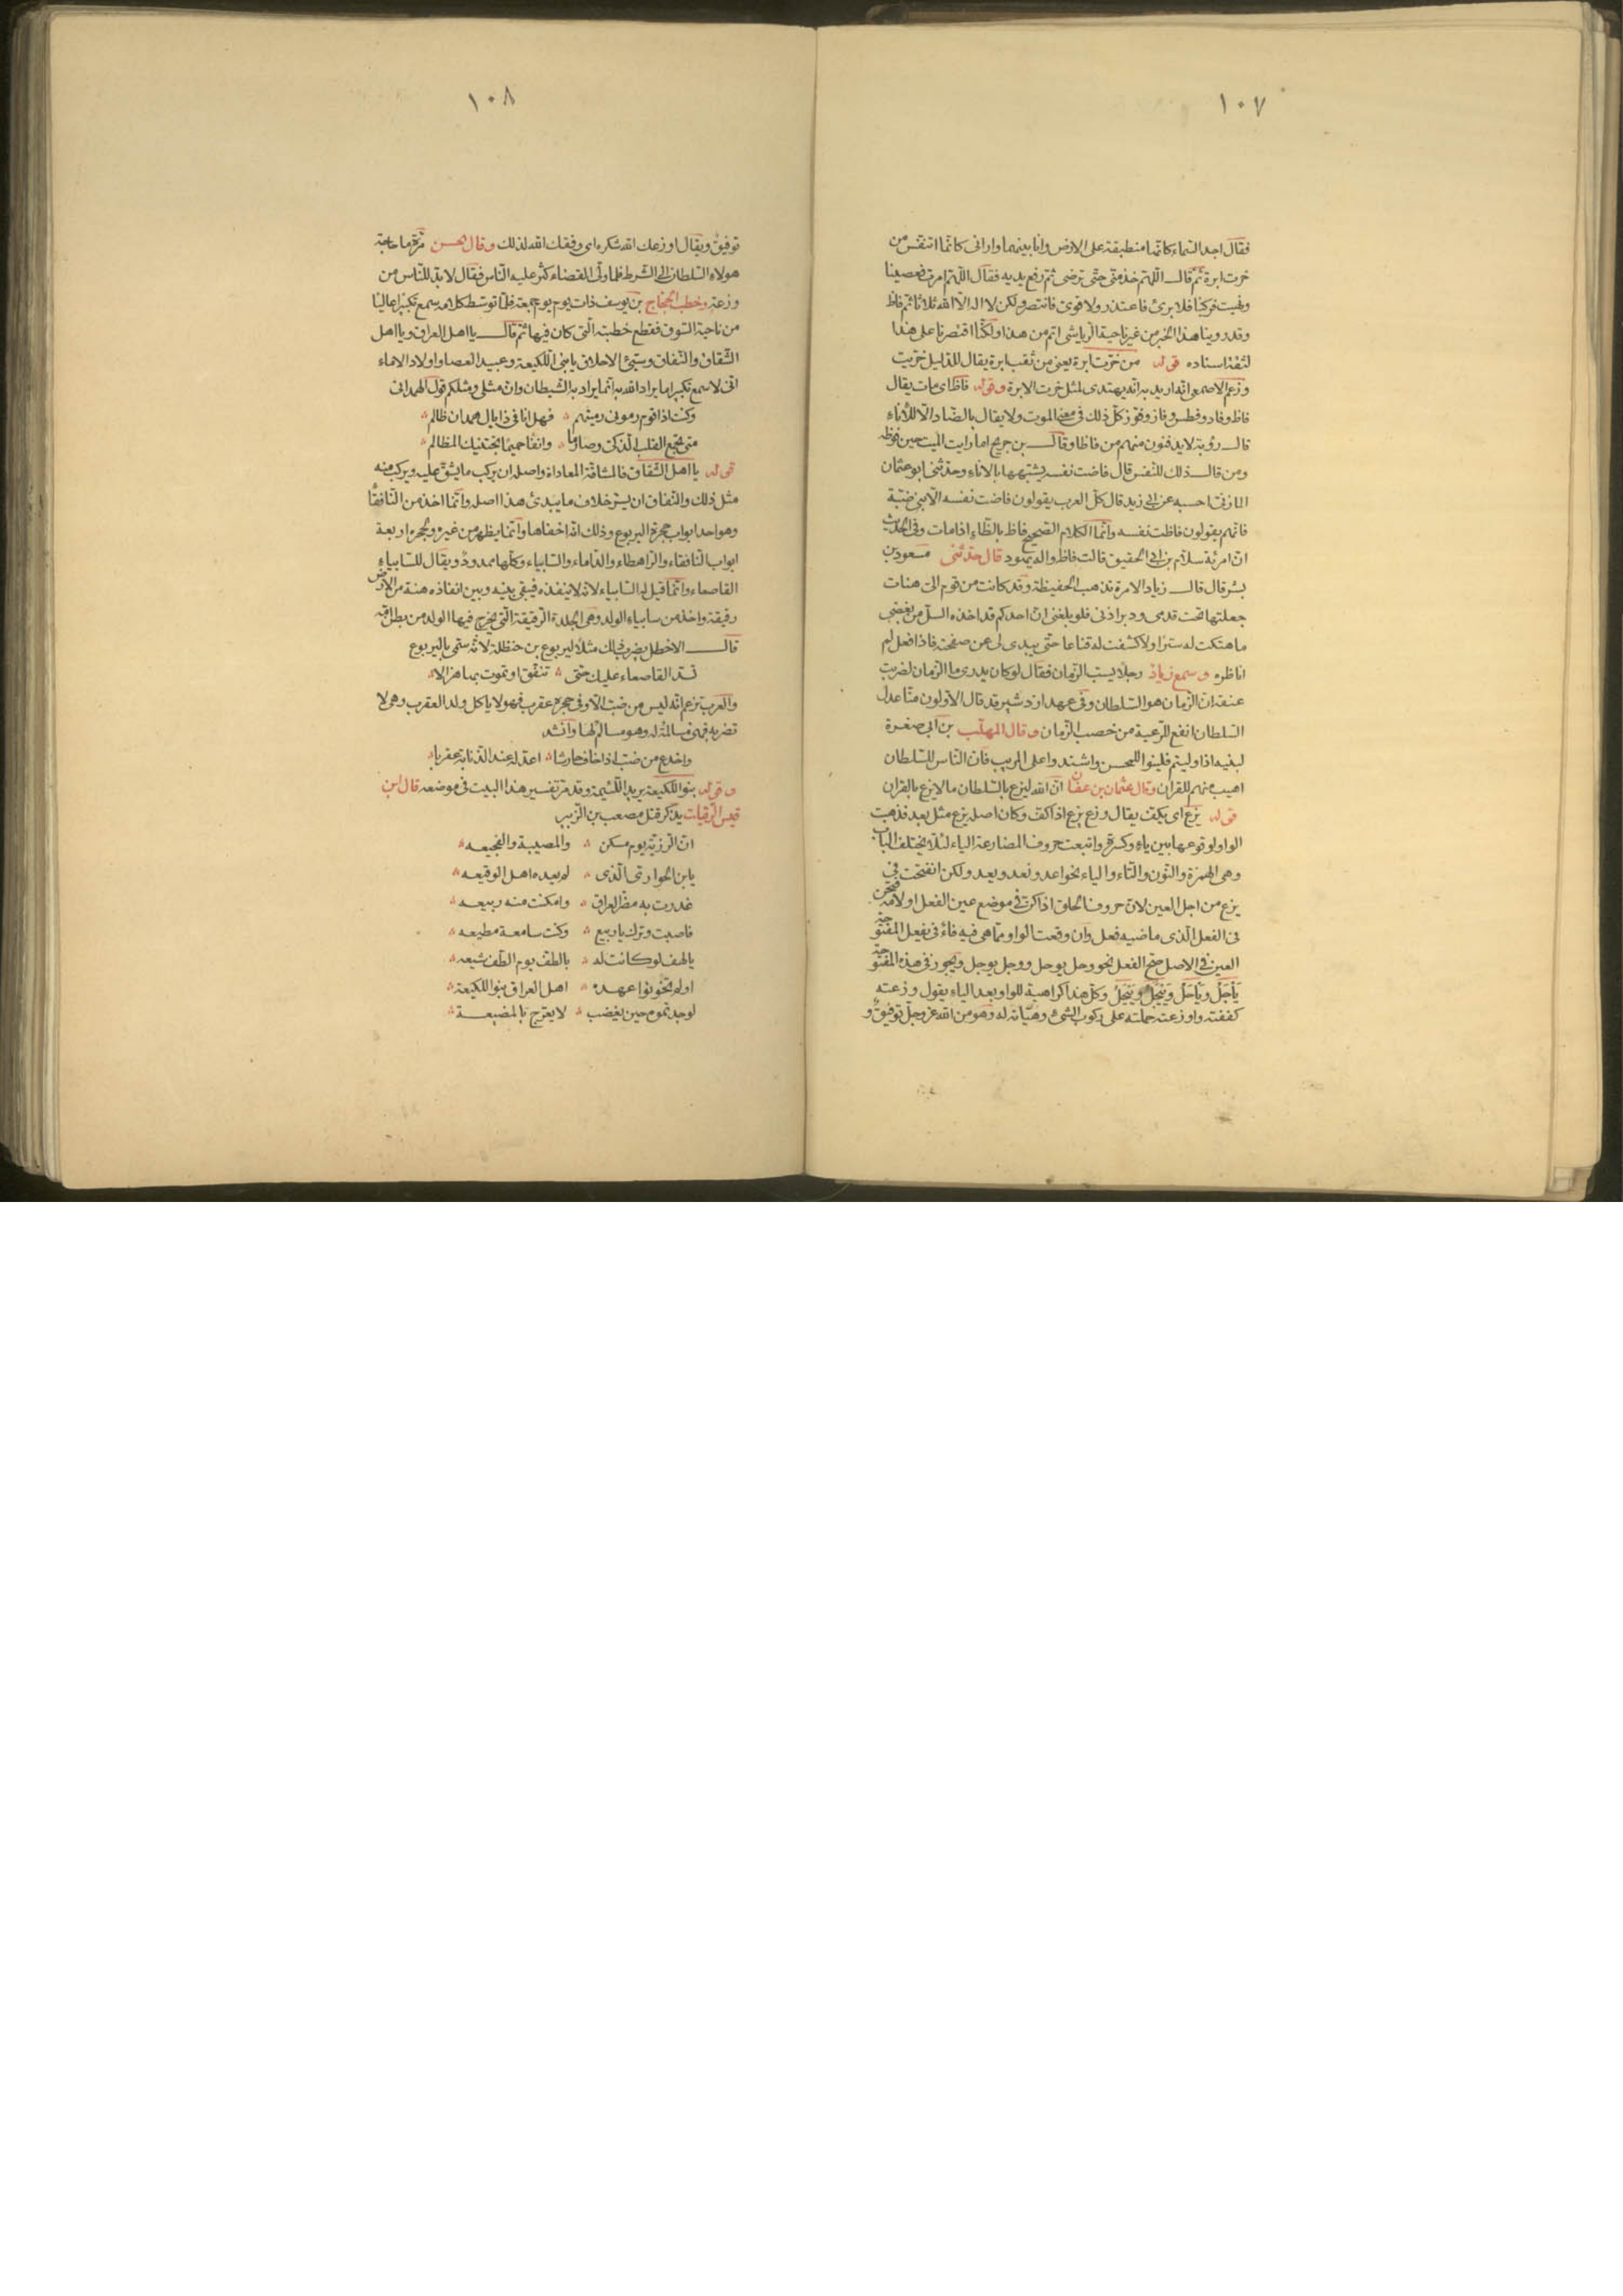 ١٠٧
فقال اجد السماء كانما منطبقة على الارض وانا بينهما واراني كانما اتنفس من
خرت ابرة ثم قال اللهم خذ منى حتى ترضى ثم رفع يديه فقال اللهم امرت فعصينا
ونهيت فركبنا فلا برئ فاعتذر ولا قوى فانتصر ولكن لا اله الا الله ثلاثا ثم فاظ
وقد روينا هذا الخبر من غير ناحية الرياشى اتم من هذا ولكنا اقتصرنا على هذا
لثقة اسناده قوله من خرت ابرة يعنى من ثقب ابرة يقال للدليل خريت
وزعم الاصمعى انه اريد به انه يهتدى لمثل خرت الابرة وقوله فاظ اى مات يقال
فاظ وفاد وفطس وفاز وفوز كل ذلك فى معنى الموت ولا يقال بالضاد الا للاناء
قال رؤبة لا يدفنون منهم من فاظا وقال بن جريج اما رايت الميت حين فوظه
ومن قال ذلك للنفس قال فاضت نفسه يشبهها بالاناء وحدثنى ابو عثمان
المازنى احسبه عن ابى زيد قال كل العرب يقولون فاضت نفسه الا بنى ضبة
فانهم يقولون فاظت نفسه وانما الكلام الصحيح فاظ بالظاء اذا مات وفى الحديث
ان امرئة سلام بن ابى الحقيق قالت فاظ واله يهود قال حدثنى مسعود بن
بشر قال قال زياد الامرة تذهب الحفيظة وقد كانت من قوم الى هنات
جعلتها تحت قدمى ودبر اذنى فلو بلغنى ان احدكم قد اخذه السل من بغضى
ما هتكت له سترا ولا كشفت له قناعا حتى يبدى لى عن صفحته فاذا فعل لم
اناظره وسمع زياد رجلا يسب الزمان فقال لو كان يدرى ما الزمان لضربت
عنقه ان الزمان هو السلطان وفى عهد ازدشير قد قال الاولون منا عدل
السلطان انفع للرعية من خصب الزمان وقال المهلب بن ابى صفرة
لبنيه اذا وليتم فلينوا للمحسن واشتدوا على المريب فان الناس للسلطان
اهيب منهم للقران وقال عثمان بن عفان ان الله ليزع بالسلطان ما لا يزع بالقران
قوله يزع اى يكف يقال وزع يزع اذا كف وكان اصله يزع مثل يعد فذهبت
الواو لوقوعها بين ياء وكسرة واتبعت حروف المضارعة الياء لئلا يختلف الباب
وهى الهمزة والنون والتاء والياء نحو اعد ونعد وتعد ولكن انفتحت فى
يزع من اجل العين لان حروف الحلق اذا كن فى موضع عين الفعل او لامه فتحن
فى الفعل الذى ماضيه فعل وان وقعت الواو مما هى فيه فاء فى يفعل المفتوحة
العين فى الاصل صح الفعل نحو وحل يوحل ووجل يوجل ويجوز فى هذه المفتوحة
ياجل وياحل وييجل وييحل وكل هذا كراهية للواو بعد الياء يقول وزعته
كففته واوزعته حملته على ركوب الشئ وهياته له وهو من الله عز وجل توفيق و
١٠٨
توفيق ويقال اوزعك الله شكره اى وفقك الله لذلك وقال الحسن مرة ما حاجة
هولاء السلطان الى الشرط فلما ولى القضاء كثر عليه الناس فقال لا بد للناس من
وزعة وخطب الحجاج بن يوسف ذات يوم يوم جمعة فلما توسط كلامه سمع تكبيرا عاليا
من ناحية السوق فقطع خطبته التى كان فيها ثم قال يا اهل العراق ويا اهل
الشقاق والنفاق وسيئ الاخلاق يا بنى اللكيعة وعبيد العصا واولاد الاماء
انى لاسمع تكبيرا ما يراد الله به انما يراد به الشيطان وان مثلى ومثلكم قول الهمدانى
وكنت اذا قوم رمونى رميتهم فهل انا فى ذا يال همدان ظالم
متى تجمع القلب الذكى وصارما وانفا حميا تجتنبك المظالم
قوله يا اهل الشقاق فالمشاقة المعاداة واصله ان يركب ما يشق عليه ويركب منه
مثل ذلك والنفاق ان يسر خلاف ما يبدى هذا اصله وانما اخذ من النافقا
وهو احد ابواب جحرة اليربوع وذلك انه اخفاها وانما يظهر من غيره ولجحره اربعة
ابواب النافقاء والراهطاء والداماء والسابياء وكلها ممدود ويقال للسابياء
القاصعاء وانما قيل له السابياء لانه لا ينفذه فيبقى بينه وبين انفاذه هنة من الارض
رقيقة واخذ من سابياء الولد وهى الجلدة الرقيقة التى يخرج فيها الولد من بطن امه
قال الاخطل يضرب ذلك مثلا ليربوع بن حنظلة لانه سمى باليربوع
تسد القاصعاء عليك حتى تنفق او تموت بها هزالا
والعرب تزعم انه ليس من ضب الا وفى جحره عقرب فهو لا ياكل ولد العقرب وهى لا
تضربه فهى مسالمة له وهو مسالم لها وانشد
واخدع من ضب اذا خاف حارشا اعد له عند الذنابة عقربا
وقوله بنو اللكيعة يريد اللئيمة وقد مر تفسير هذا البيت فى موضعه قال ابن
قيس الرقيات يذكر قتل مصعب بن الزبير
ان الرزية يوم مسكن والمصيبة والفجيعه
يابن الحوارى الذى لم يعده اهل الوقيعه
غدرت به مضر العراق وامكنت منه ربيعه
فاصبت وترك يا ربيع وكنت سامعة مطيعه
يا لهف لو كانت له بالطف يوم الطف شيعه
اولم تخونوا عهده اهل العراق بنو اللكيعة
لوجدتموه حين يغضب لا يعرج بالمضيعة